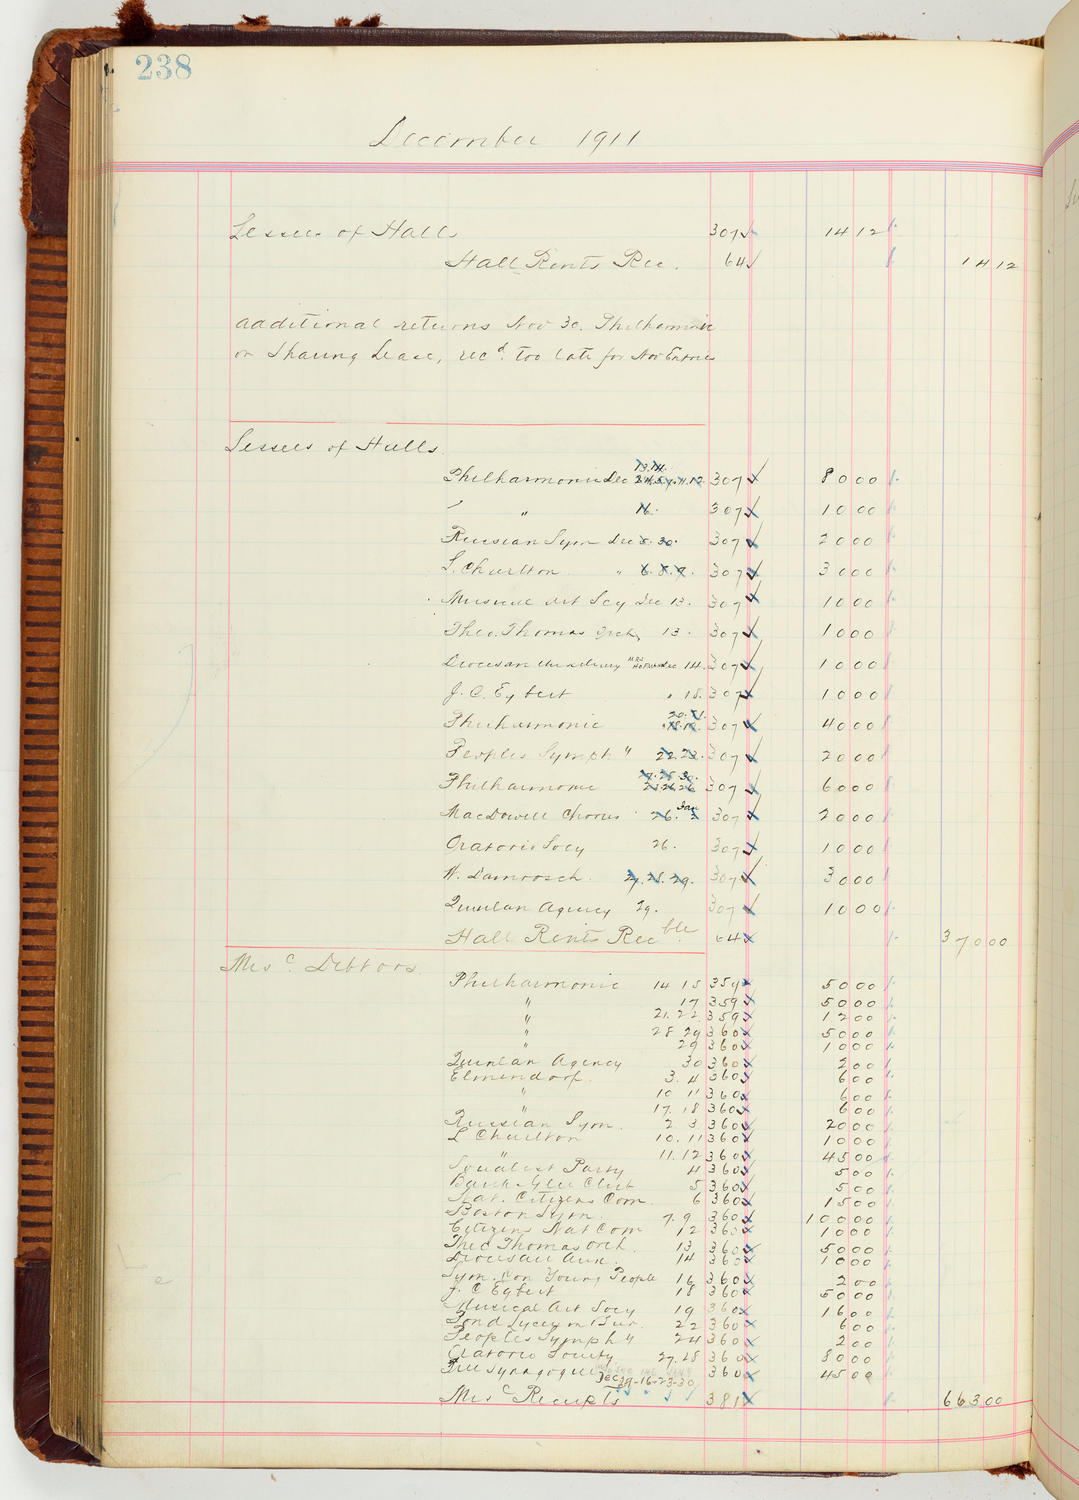 238
December 1911
Lessees of Halls 307 14 12
Hall Rents Rec. 64 14 12
additional returns Nov 30. Philharmonic
on Sharing Lease, recd. too late for Nov Entries
Lessees of Halls.
13. 14.
Philharmonic Dec 11. 12 307 80 00
" " 16. 307 10 00
Russian Sym Dec 8. 30. 307 20 00
L. Charlton " 6. 8. 9. 307 30 00
Musical Art Scy Dec 13. 307 10 00
Theo. Thomas Orch, 13. 307 10 00
Diocesan Auxiliary Mrs Dec 14. 307 10 00
J. C. Egbert " 18. 307 10 00
20. 21.
Philharmonic 307 40 00
Peoples Symph " 22. 23. 307 20 00
27. 28. 30.
Philharmonic 307 60 00
MacDowell Chorus 26. Jan 2 307 20 00
Oratorio Socy 26. 307 10 00
W. Damrosch. 27. 28. 29. 307 30 00
Quinlan Agency 29. 307 10 00
Hall Rents Recble. 64 370 00
Misc. Debtors.
Philharmonic 14 15 359 50 00
" 17 359 50 00
" 21. 22 359 12 00
" 28 29 360 50 00
" 29 360 10 00
Quinlan Agency 30 360 2 00
Elmendorf. 3. 4 360 6 00
" 10 11 360 6 00
" 17. 18 360 6 00
Russian Sym. 2 3 360 20 00
L Charlton 10. 11 360 10 00
" 11. 12 360 45 00
Socialist Party 4 360 5 00
Bank Glee Club 5 360 5 00
Nat. Citizens Com. 6 360 15 00
Boston Sym. 7. 9 360 100 00
Citizens Nat Com 12 360 10 00
Theo Thomas Orch. 13 360 50 00
Diocesan Aux. 14 360 10 00
Sym. Con Young People 16 360 2 00
J. C Egbert 18 360 50 00
Musical Art Socy 19 360 16 00
Pond Lyceum Bur. 22 360 6 00
Peoples Symph " 24 360 2 00
Oratorio Society 27. 28 360 80 00
Free Synagogue 360 45 00
Dec 9-16-23-30
Misc Receipts 381 663 00